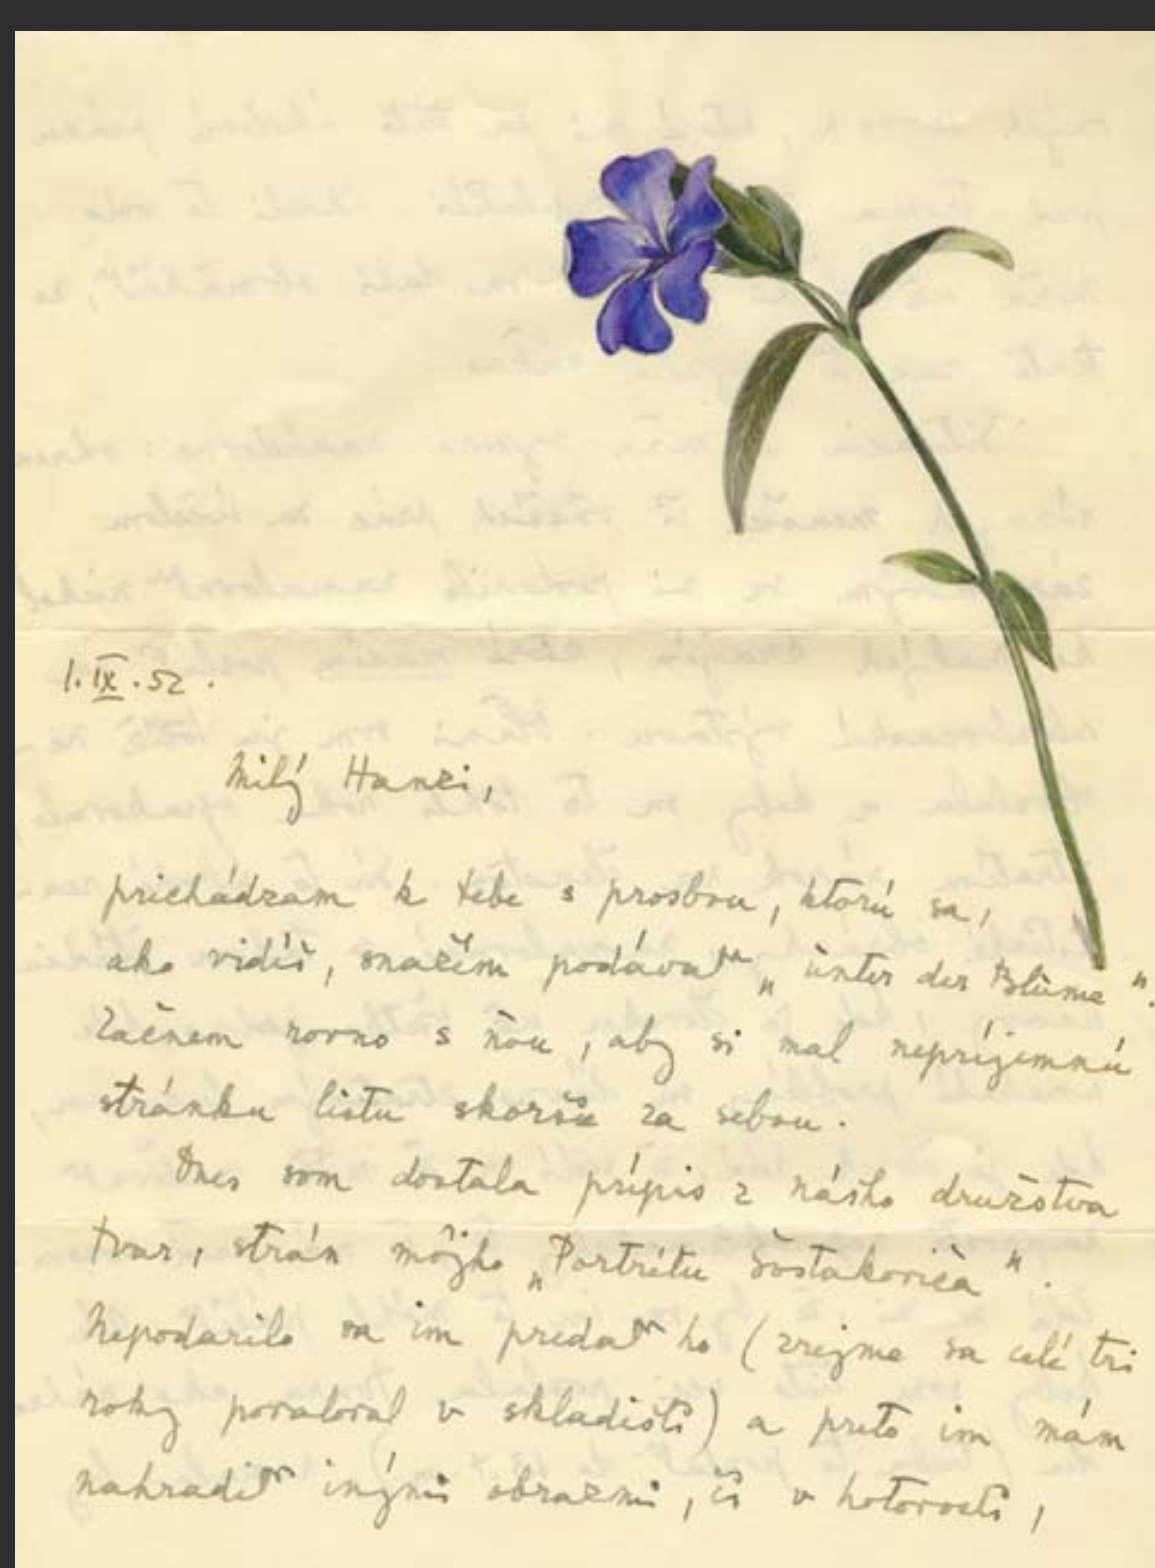 1. IX. 52.
Milý Hanzi,
prichádzam k tebe s prosbou, ktorú sa,
ako vidíš, snažím podávať „unter der Blume“.
Začnem rovno s ňou, aby si mal nepríjemnú
stránku listu skoršie za sebou.
Dnes som dostala prípis z nášho družstva
Tvar, strán môjho „Portrétu Šostakoviča“.
Nepodarilo sa im predať ho (zrejme sa celé tri
roky povaľoval v skladišti) a preto im mám
nahradiť inými obrazmi, či v hotovosti,